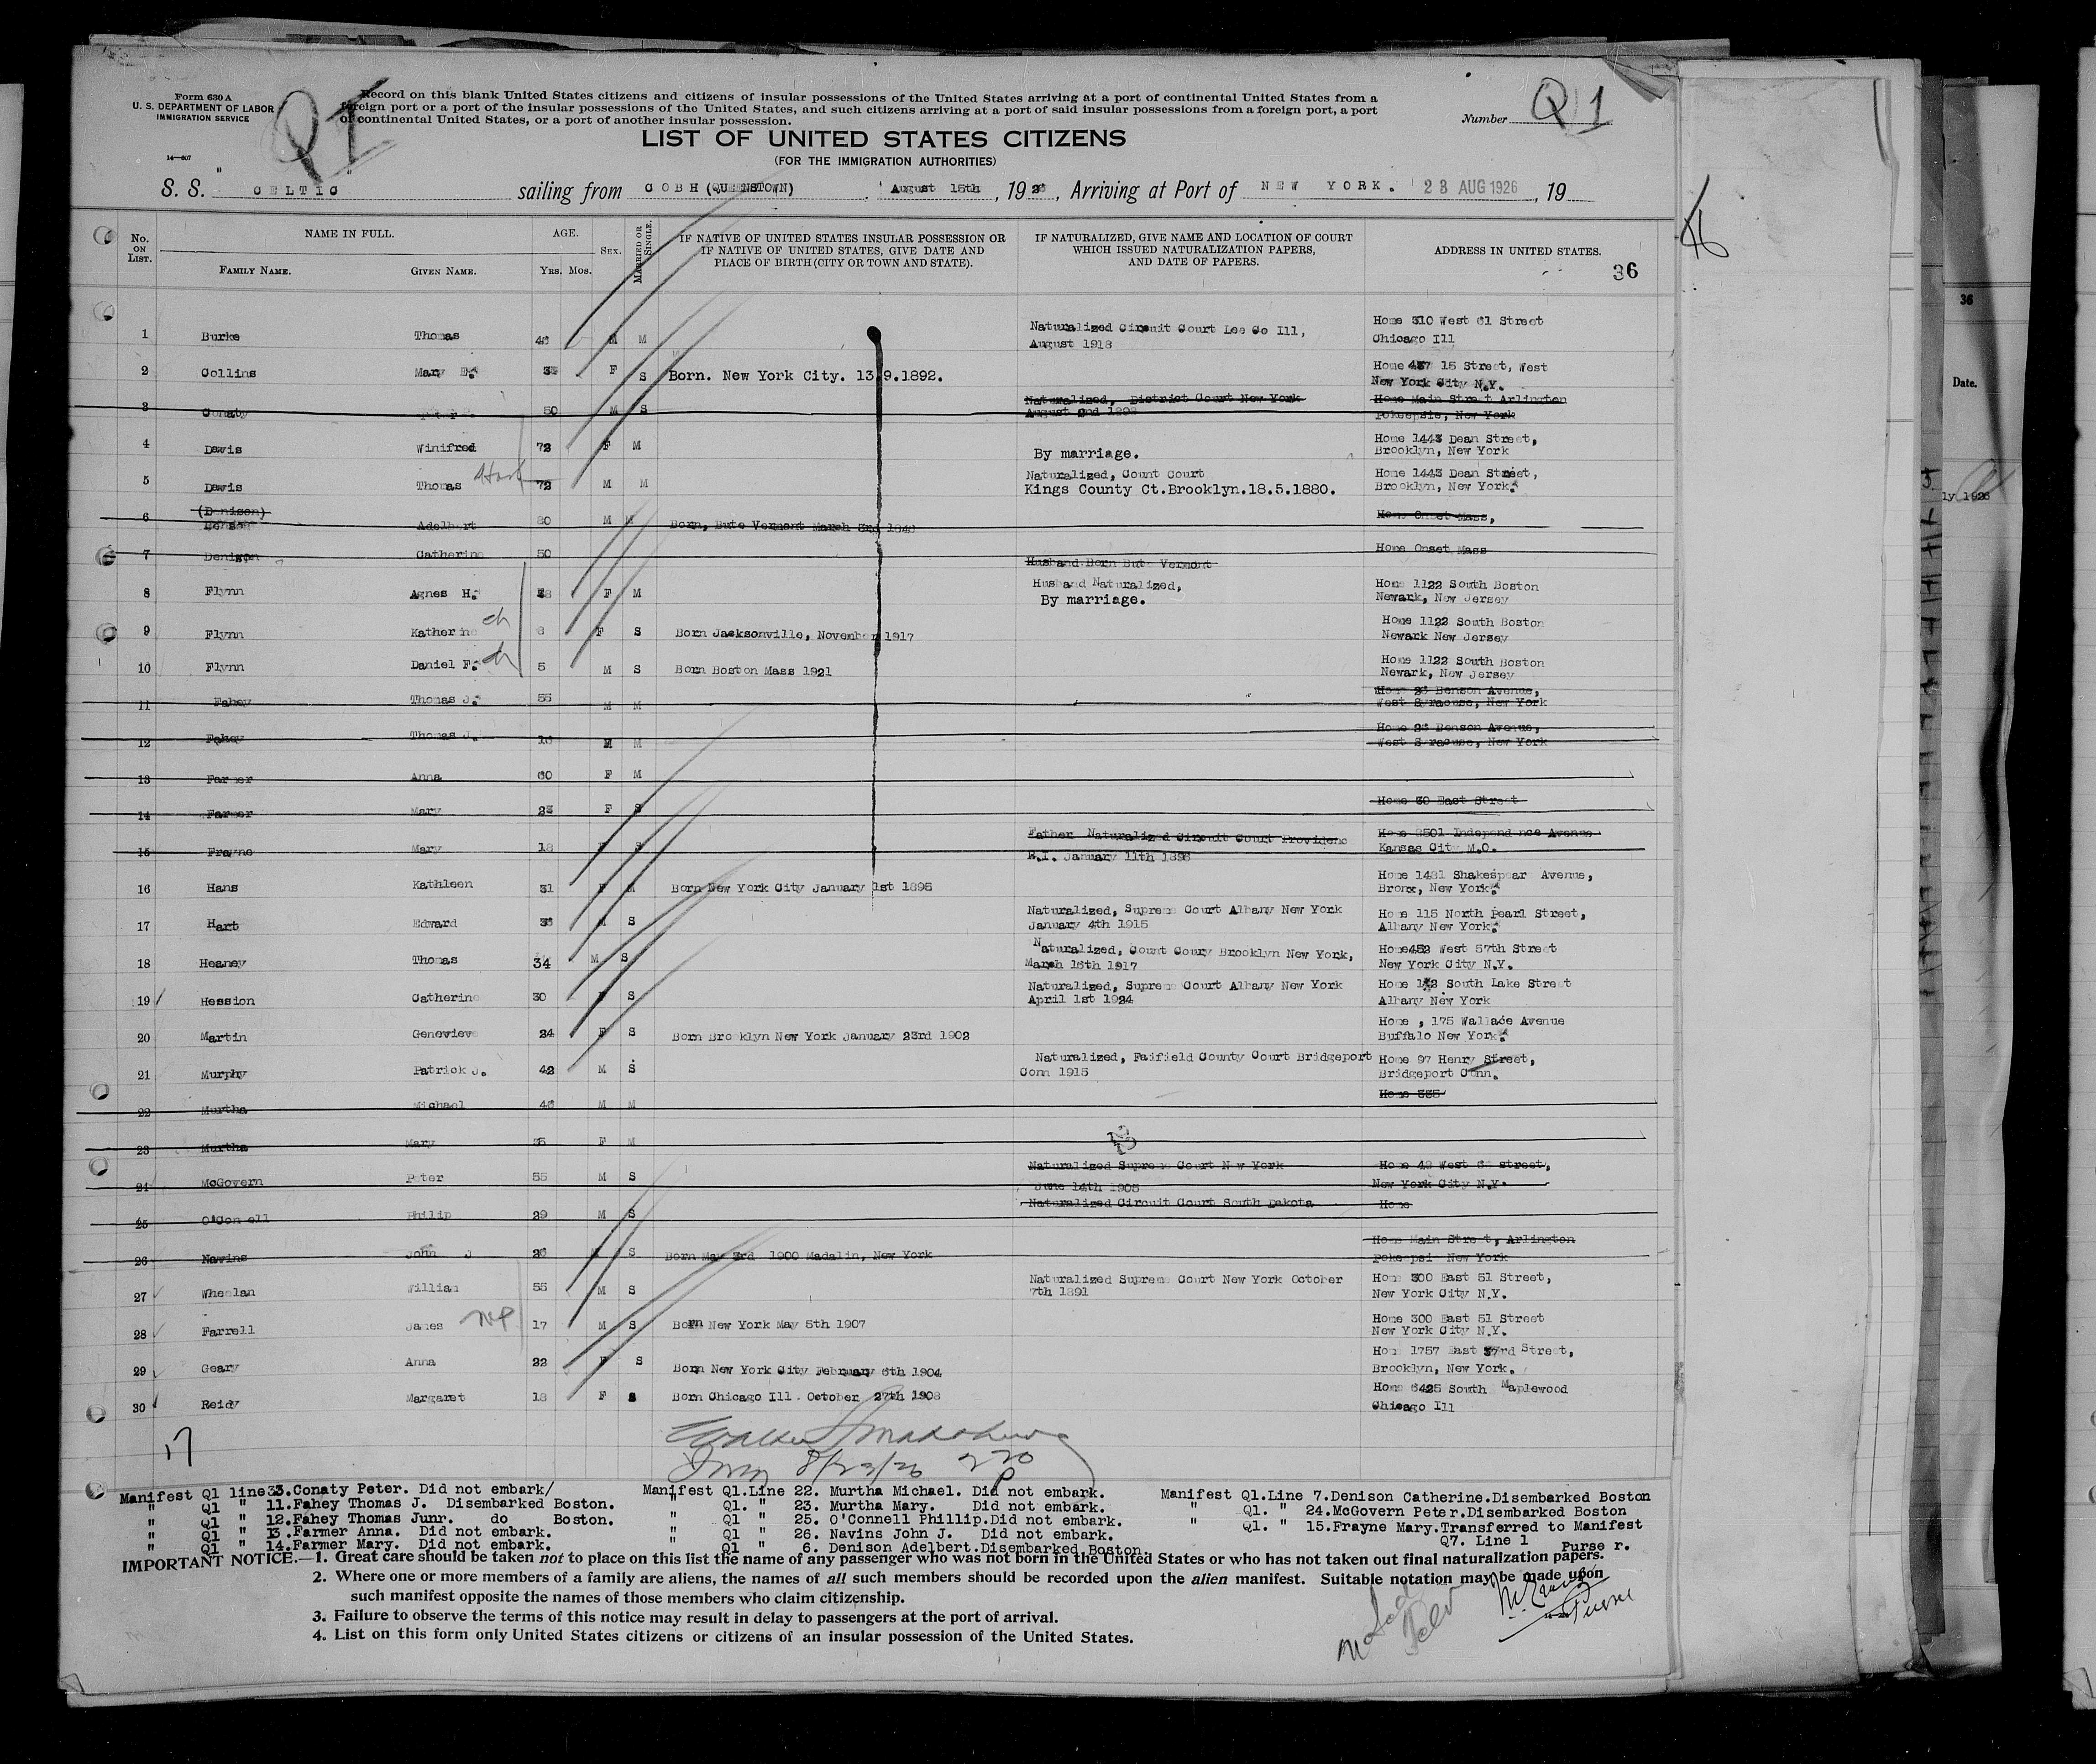 Form 630 A
U. S. DEPARTMENT OF LABOR
IMMIGRATION SERVICE
14—607
Q1
Record on this blank United States citizens and citizens of insular possessions of the United States arriving at a port of continental United States from a
foreign port or a port of the insular possessions of the United States, and such citizens arriving at a port of said insular possessions from a foreign port, a port
of continental United States, or a port of another insular possession.
Number Q1
LIST OF UNITED STATES CITIZENS
(FOR THE IMMIGRATION AUTHORITIES)
S. S. " CELTIC " sailing from COBH (QUEENSTOWN) , August 15th , 1926 , Arriving at Port of NEW YORK. 23 AUG 1926 , 19
No. ON LIST. NAME IN FULL. AGE. SEX. MARRIED OR SINGLE. IF NATIVE OF UNITED STATES INSULAR POSSESSION OR IF NATIVE OF UNITED STATES, GIVE DATE AND PLACE OF BIRTH (CITY OR TOWN AND STATE). IF NATURALIZED, GIVE NAME AND LOCATION OF COURT WHICH ISSUED NATURALIZATION PAPERS, AND DATE OF PAPERS. ADDRESS IN UNITED STATES.
FAMILY NAME. GIVEN NAME. YRS. MOS.
36
1 Burke Thomas M M Naturalized Circuit Court Lee Co Ill, August 1918 Home 310 West 61 Street Chicago Ill
2 Collins Mary E. F S Born. New York City. 13.9.1892. Home 15 Street, West New York City N.Y.
3 Conaty 50 M S Naturalized, District Court New York August 2nd Home Main Street Arlington Pokeepsie, New York
4 Davis Winifred 72 F M By marriage. Home 1443 Dean Street, Brooklyn, New York
5 Davis Thomas 72 M M Naturalized, Count Court Kings County Ct.Brooklyn.18.5.1880. Home 1443 Dean Street, Brooklyn, New York.
6 (Denison) Adelbert 80 M M Born, Bute Vermont March 3rd Home Onset Mass,
7 Denison Catherine 50 Husband Born Bute Vermont Home Onset Mass
8 Flynn Agnes H. F M Husband Naturalized, By marriage. Home 1122 South Boston Newark, New Jersey
9 Flynn Katherine ch 8 F S Born Jacksonville, November 1917 Home 1122 South Boston Newark New Jersey
10 Flynn Daniel F. ch 5 M S Born Boston Mass 1921 Home 1122 South Boston Newark, New Jersey
11 Fahey Thomas J. 55 M M Home 26 Benson Avenue, West Syracuse, New York
12 Fahey Thomas J. M M Home 26 Benson Avenue, West Syracuse, New York
13 Farmer Anna 60 F M
14 Farmer Mary 23 F S Home 30 East Street
15 Frayne Mary 18 F S Father Naturalized Circuit Court Providenc R.I. January 11th Home 3501 Independence Avenue Kansas City M.O.
16 Hans Kathleen 31 F M Born New York City January 1st 1895 Home 1431 Shakespear Avenue, Bronx, New York.
17 Hart Edward M S Naturalized, Supreme Court Albany New York January 4th 1915 Home 115 North Pearl Street, Albany New York.
18 Heaney Thomas 34 M S Naturalized, Count Coury Brooklyn New York, March 15th 1917 Home452 West 57th Street New York City N.Y.
19 Hession Catherine 30 F S Naturalized, Supreme Court Albany New York April 1st 1924 Home South Lake Street Albany New York
20 Martin Genevieve 24 F S Born Brooklyn New York January 23rd 1902 Home , 175 Wallace Avenue Buffalo New York.
21 Murphy Patrick J. 42 M S Naturalized, Fairfield County Court Bridgeport Conn 1915 Home 97 Henry Street, Bridgeport Conn.
22 Murtha Michael M M Home 335
23 Murtha Mary F M
24 McGovern Peter 55 M S Naturalized Supreme Court New York June 14th 1905 Home 42 West street, New York City N.Y.
25 O'Connell Philip 29 M S Naturalized Circuit Court South Dakota Home
26 Navins John J 26 M S Born May 3rd 1900 Madalin, New York Home Main Street, Arlington Pokeepsi New York
27 Wheelan William 55 M S Naturalized Supreme Court New York October 7th 1891 Home 300 East 51 Street, New York City N.Y.
28 Farrell James 17 M S Born New York May 5th 1907 Home 300 East 51 Street New York City N.Y.
29 Geary Anna 22 F S Born New York City February 6th 1904 Home 1757 East Street, Brooklyn, New York.
30 Reidy Margaret 18 F S Born Chicago Ill. October 27th 1908 Home 6425 South Maplewood Chicago Ill
17
8/23/26
Manifest Q1 line 3.Conaty Peter. Did not embark/
" Q1 " 11.Fahey Thomas J. Disembarked Boston.
" Q1 " 12.Fahey Thomas Junr. do Boston.
" Q1 " 13.Farmer Anna. Did not embark.
" Q1 " 14.Farmer Mary. Did not embark.
Manifest Q1.Line 22. Murtha Michael. Did not embark.
" Q1. " 23. Murtha Mary. Did not embark.
" Q1 " 25. O'Connell Phillip.Did not embark.
" Q1 " 26. Navins John J. Did not embark.
" Q1 " 6. Denison Adelbert.Disembarked Boston.
Manifest Q1.Line 7.Denison Catherine.Disembarked Boston
" Q1. " 24.McGovern Peter.Disembarked Boston
" Q1. " 15.Frayne Mary.Transferred to Manifest
Q7. Line 1
Purser.
IMPORTANT NOTICE.—1. Great care should be taken not to place on this list the name of any passenger who was not born in the United States or who has not taken out final naturalization papers.
2. Where one or more members of a family are aliens, the names of all such members should be recorded upon the alien manifest. Suitable notation may be made upon
such manifest opposite the names of those members who claim citizenship.
3. Failure to observe the terms of this notice may result in delay to passengers at the port of arrival.
4. List on this form only United States citizens or citizens of an insular possession of the United States.
36
Date.